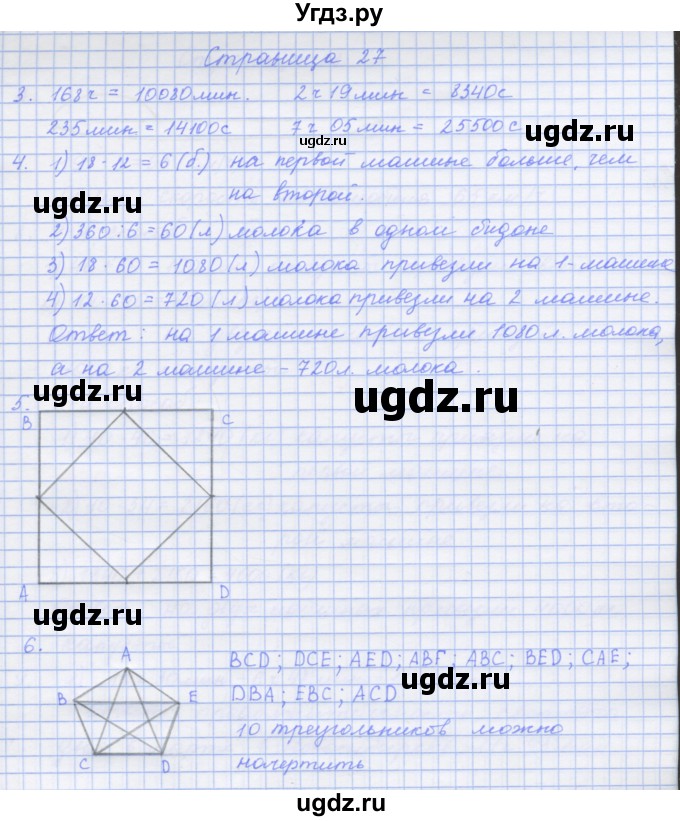 Угдз.ру
Страница 27
3. 168ч = 10080мин. 2ч 19мин = 8340с
235мин = 14100с 7ч 05мин = 25500с
ugdz.ru
4. 1) 18-12=6(б) на первой машине больше, чем
ugdz.ru
на второй.
ugdz.ru
2) 360:6=60(л) молока в одном бидоне
3) 18·60 = 1080(л) молока привезли на 1-машине
4) 12·60=720(л) молока привезли на 2 машине.
Ответ: на 1 машине привезли 1080л. молока,
а на 2 машине - 720л. молока.
ugdz.ru
5.
B C
A D
ugdz.ru
ugdz.ru
6.
A
B E
C D
BCD; DCE; AED; ABF; ABC; BED; CAE;
ugdz.ru
DBA; EBC; ACD
10 треугольников можно
ugdz.ru
начертить
ugdz.ru